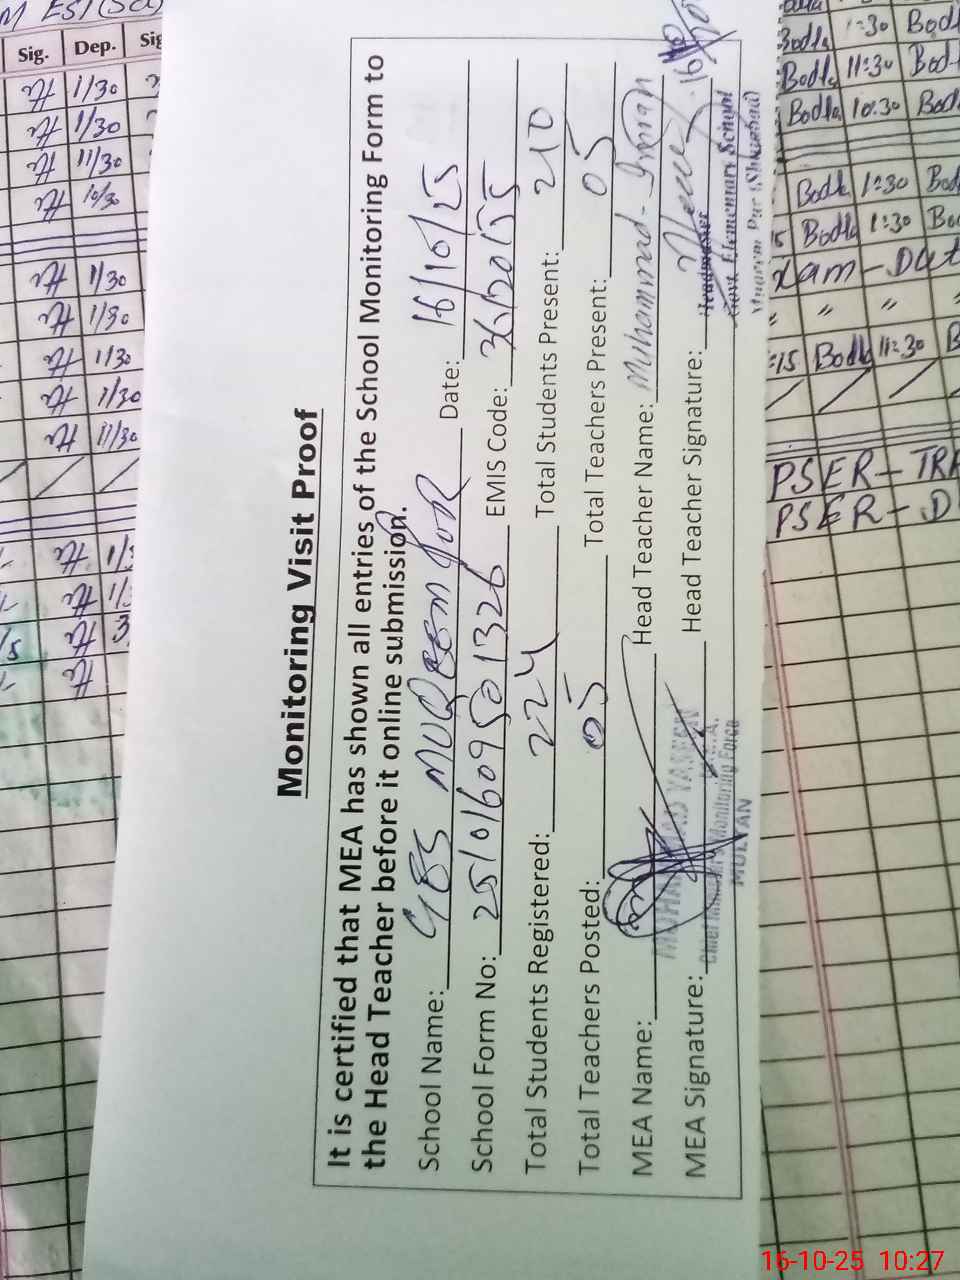 Monitoring Visit Proof
It is certified that MEA has shown all entries of the School Monitoring Form to
the Head Teacher before it online submission.
School Name: GBS MUQEEM PUR Date: 16/10/25
School Form No: 25101609501326 EMIS Code: 36120155
Total Students Registered: 224 Total Students Present: 210
Total Teachers Posted: 05 Total Teachers Present: 05
MEA Name: Head Teacher Name: Muhammad Imran
MEA Signature: Head Teacher Signature:
MUHAMMAD YASEEN
Chief Minister's Monitoring Force
MULTAN
Headmaster
Govt. Elementary School
Sig. Dep. Sig
1/30
1/30
11/30
10/30
1/30
1/30
1/30
1/30
11/30
Bodla 1:30 Bodl
Bodla 11:30 Bod
Bodla 10:30 Bod
Bodla 1:30 Bod
Bodla 1:30 Bo
" "
:15 Bodla 11:30 B
PSER - TRA
PSER - D
16-10-25 10:27